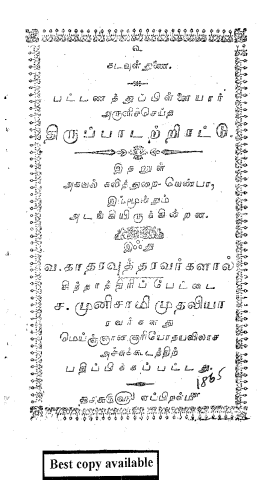 உ
கடவுள் துணை.
பட்டணத்துப்பிள்ளையார்
அருளிச்செய்த
திருப்பாடற்றிரட்டு.
இதனுள்
அகவல் கலித்துறை-வெண்பா,
இம்மூன்றும்
அடங்கியிருக்கின்றன.
இஃது
வ. காதரவுத்தரவர்களால்
சிந்தாத்திரிப்பேட்டை
ச. முனிசாமிமுதலியா
ரவர்களது
மெய்ஞ்ஞானசூரியோதயவிலாச
அச்சுக்கூடத்திற்
பதிப்பிக்கப்பட்டது.
1865
Best copy available